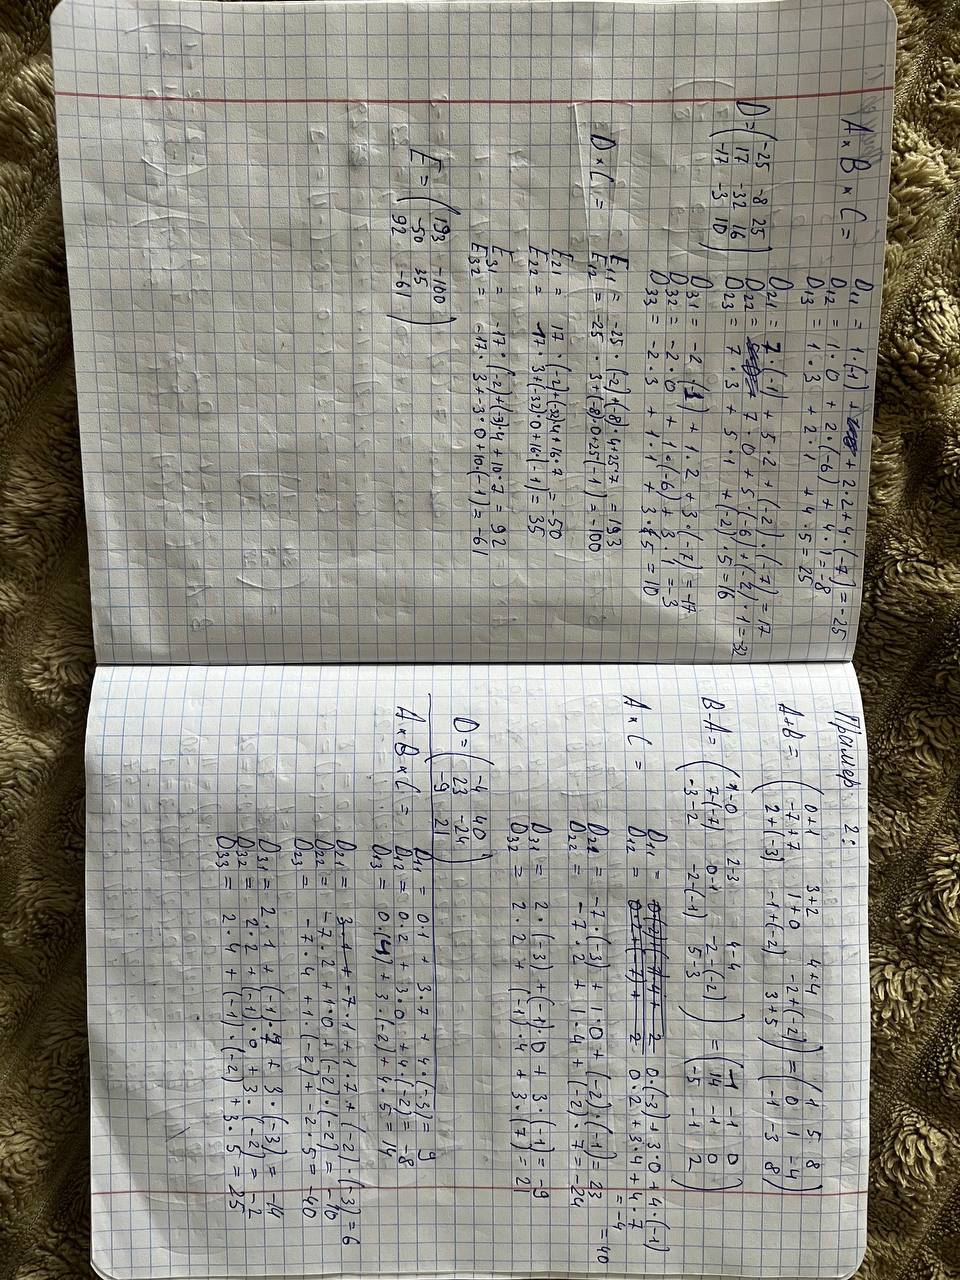 A × B × C =
D₁₁ = 1·(-1) + 2·2+4·(-7) = -25
D₁₂ = 1·0 + 2·(-6) + 4·1 = -8
D₁₃ = 1·3 + 2·1 + 4·5 = 25
D = (-25 -8 25
17 -32 16
-17 -3 10)
D₂₁ = 7·(-1) + 5·2 + (-2)·(-7) = 17
D₂₂ = 7·0 + 5·(-6) + (-2)·1 = -32
D₂₃ = 7·3 + 5·1 + (-2)·5 = 16
D₃₁ = -2 (-1) + 1·2 + 3·(-7) = -17
D₃₂ = -2·0 + 1·(-6) + 3·1 = -3
D₃₃ = -2·3 + 1·1 + 3·5 = 10
D × C =
E₁₁ = -25·(-2)+(-8)·4+25·7 = 193
E₁₂ = -25·3+(-8)·0+25(-1) = -100
E₂₁ = 17·(-2)+(-32)·4+16·7 = -50
E₂₂ = 17·3+(-32)·0+16·(-1) = 35
E₃₁ = -17·(-2)+(-3)·4+10·7 = 92
E₃₂ = -17·3+-3·0+10·(-1) = -61
E = (193 -100
-50 35
92 -61)
Пример 2:
A+B = (0+1 3+2 4+4
-7+7 1+0 -2+(-2)
2+(-3) -1+(-2) 3+5) = (1 5 8
0 1 -4
-1 -3 8)
B-A = (1-0 2-3 4-4
7-(-7) 0-1 -2-(-2)
-3-2 -2-(-1) 5-3) = (1 -1 0
14 -1 0
-5 -1 2)
A × C =
D₁₁ = 0·(-3) + 3·0 + 4·(-1) = -4
D₁₂ = 0·2 + 3·4 + 4·7 = 40
D₂₁ = -7·(-3) + 1·0 + (-2)·(-1) = 23
D₂₂ = -7·2 + 1·4 + (-2)·7 = -24
D₃₁ = 2·(-3) + (-1)·0 + 3·(-1) = -9
D₃₂ = 2·2 + (-1)·4 + 3·(7) = 21
D = (-4 40
23 -24
-9 21)
A × B × C =
D₁₁ = 0·1 + 3·7 + 4·(-3) = 9
D₁₂ = 0·2 + 3·0 + 4·(-2) = -8
D₁₃ = 0·(4) + 3·(-2) + 4·5 = 14
D₂₁ = -7·1 + 1·7 + (-2)·(-3) = 6
D₂₂ = -7·2 + 1·0 + (-2)·(-2) = -10
D₂₃ = -7·4 + 1·(-2) + -2·5 = -40
D₃₁ = 2·1 + (-1)·7 + 3·(-3) = -14
D₃₂ = 2·2 + (-1)·0 + 3·(-2) = -2
D₃₃ = 2·4 + (-1)·(-2) + 3·5 = 25